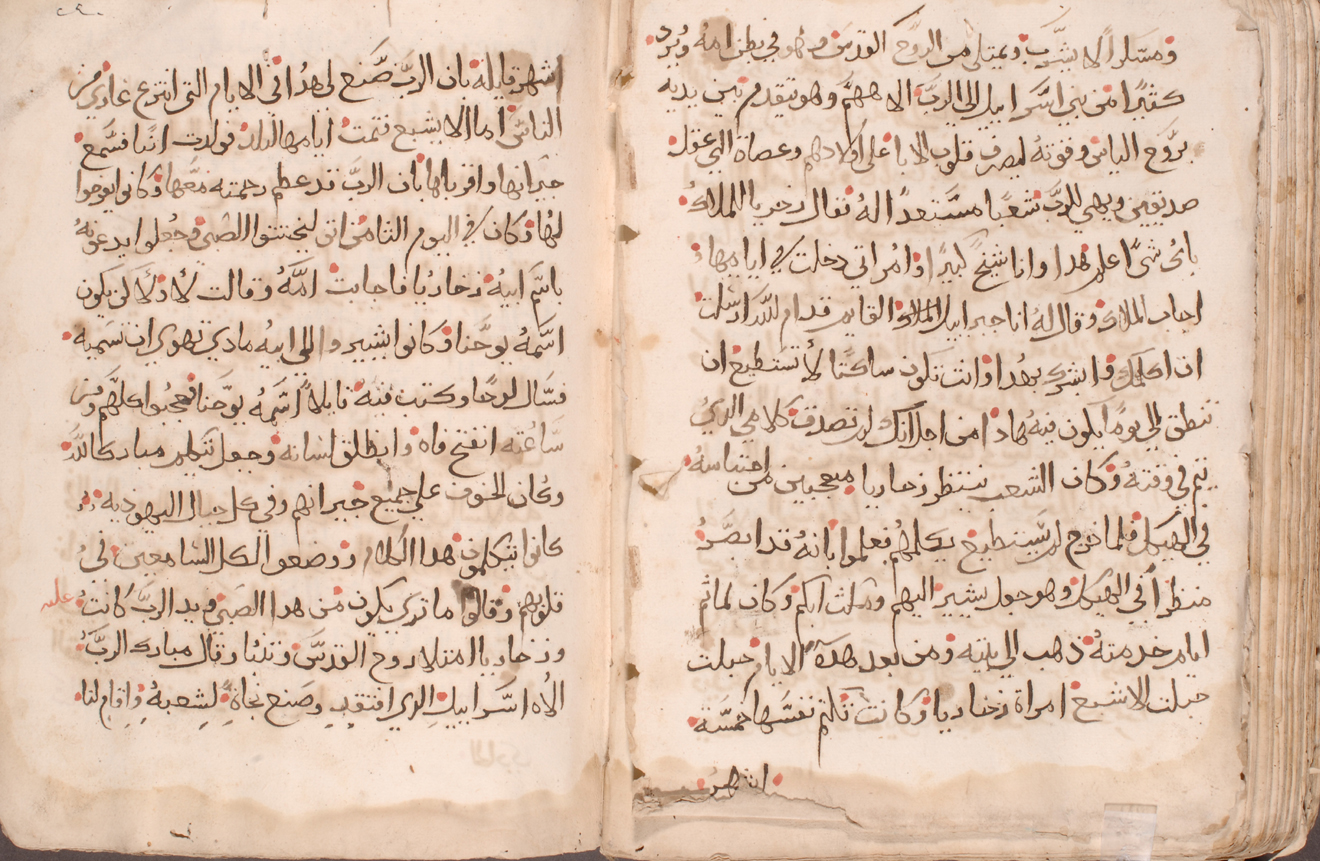 ومسكرا لا يشرب ويمتلي من الروح القدس وهو في بطن امه ويرد
كثيرًا من بني اسراييل الي الرب الاههم وهو يتقدم بين يديه
بروح الياس وقوته ليصرف قلوب الابا علي اولادهم وعصاة الي عقل
صديقين ويهيي للرب شعبا مستعدًا له فقال زخريا للملاك
باي شي اعلم هدا وانا شيخ كبير وامراتي دخلت في ايامها
اجاب الملاك وقال له انا جبراييل الملاك القايم قدام الله ارسلت
ان اكلمك وابشرك بهدا وانت تكون ساكتًا لا تستطيع ان
تنطق الي يومًا يكون فيه هادا من اجل انك لم تصدق كلامي الدي
يتم في وقته وكان الشعب ينتظر زخاريا متعجبين من احتباسه
في الهيكل فلما خرج لم يستطيع يكلمهم فعلموا بانه قد ابصر
منظرًا في الهيكل وهو جعل يشير اليهم ومكث ابكم وكان لما تم
ايام خدمته ذهب الي بيته ومن بعد هده الايام حبلت
حبلت الاشبع امراة زخاريا وكانت تكتم نفسها خمسة
اشهر
اشهر قايلة بان الرب صنع لي هدا في الايام التي انتزع عاري من
الناس اما الايشبع فتمت ايامها لتلد فولدت ابنًا فسمع
جيرانها واقرباها بان الرب قد عظم رحمته معها وكانوا يفرحوا
لها وكان في اليوم الثامن اتي ليختنوا الصبي وجعلوا يدعونه
باسم ابيه زخاريا فاجابت امه وقالت لا لا لكن يكون
اسمه يوحنا وكانوا يشيروا الي ابيه مادي تهوي ان نسميه
فسال لوحًا وكتب فيه قايلاً اسمه يوحنا فعجبوا كلهم ومن
ساعته انفتح فاه وانطلق لسانه وجعل يتكلم مباركا لله
وكان الخوف علي جميع جيرانهم وفي كل جبال اليهوديه
كانوا يتكلمون هدا الكلام ووضعوا الكل السامعين في
قلوبهم وقالوا ما تري يكون من هدا الصبي ويد الرب كانت عليه
وزخاريا امتلا روح القدس وتنبا وقال مبارك الرب
الاه اسراييل الدي افتقد وصنع نجاة لشعبه واقام لنا